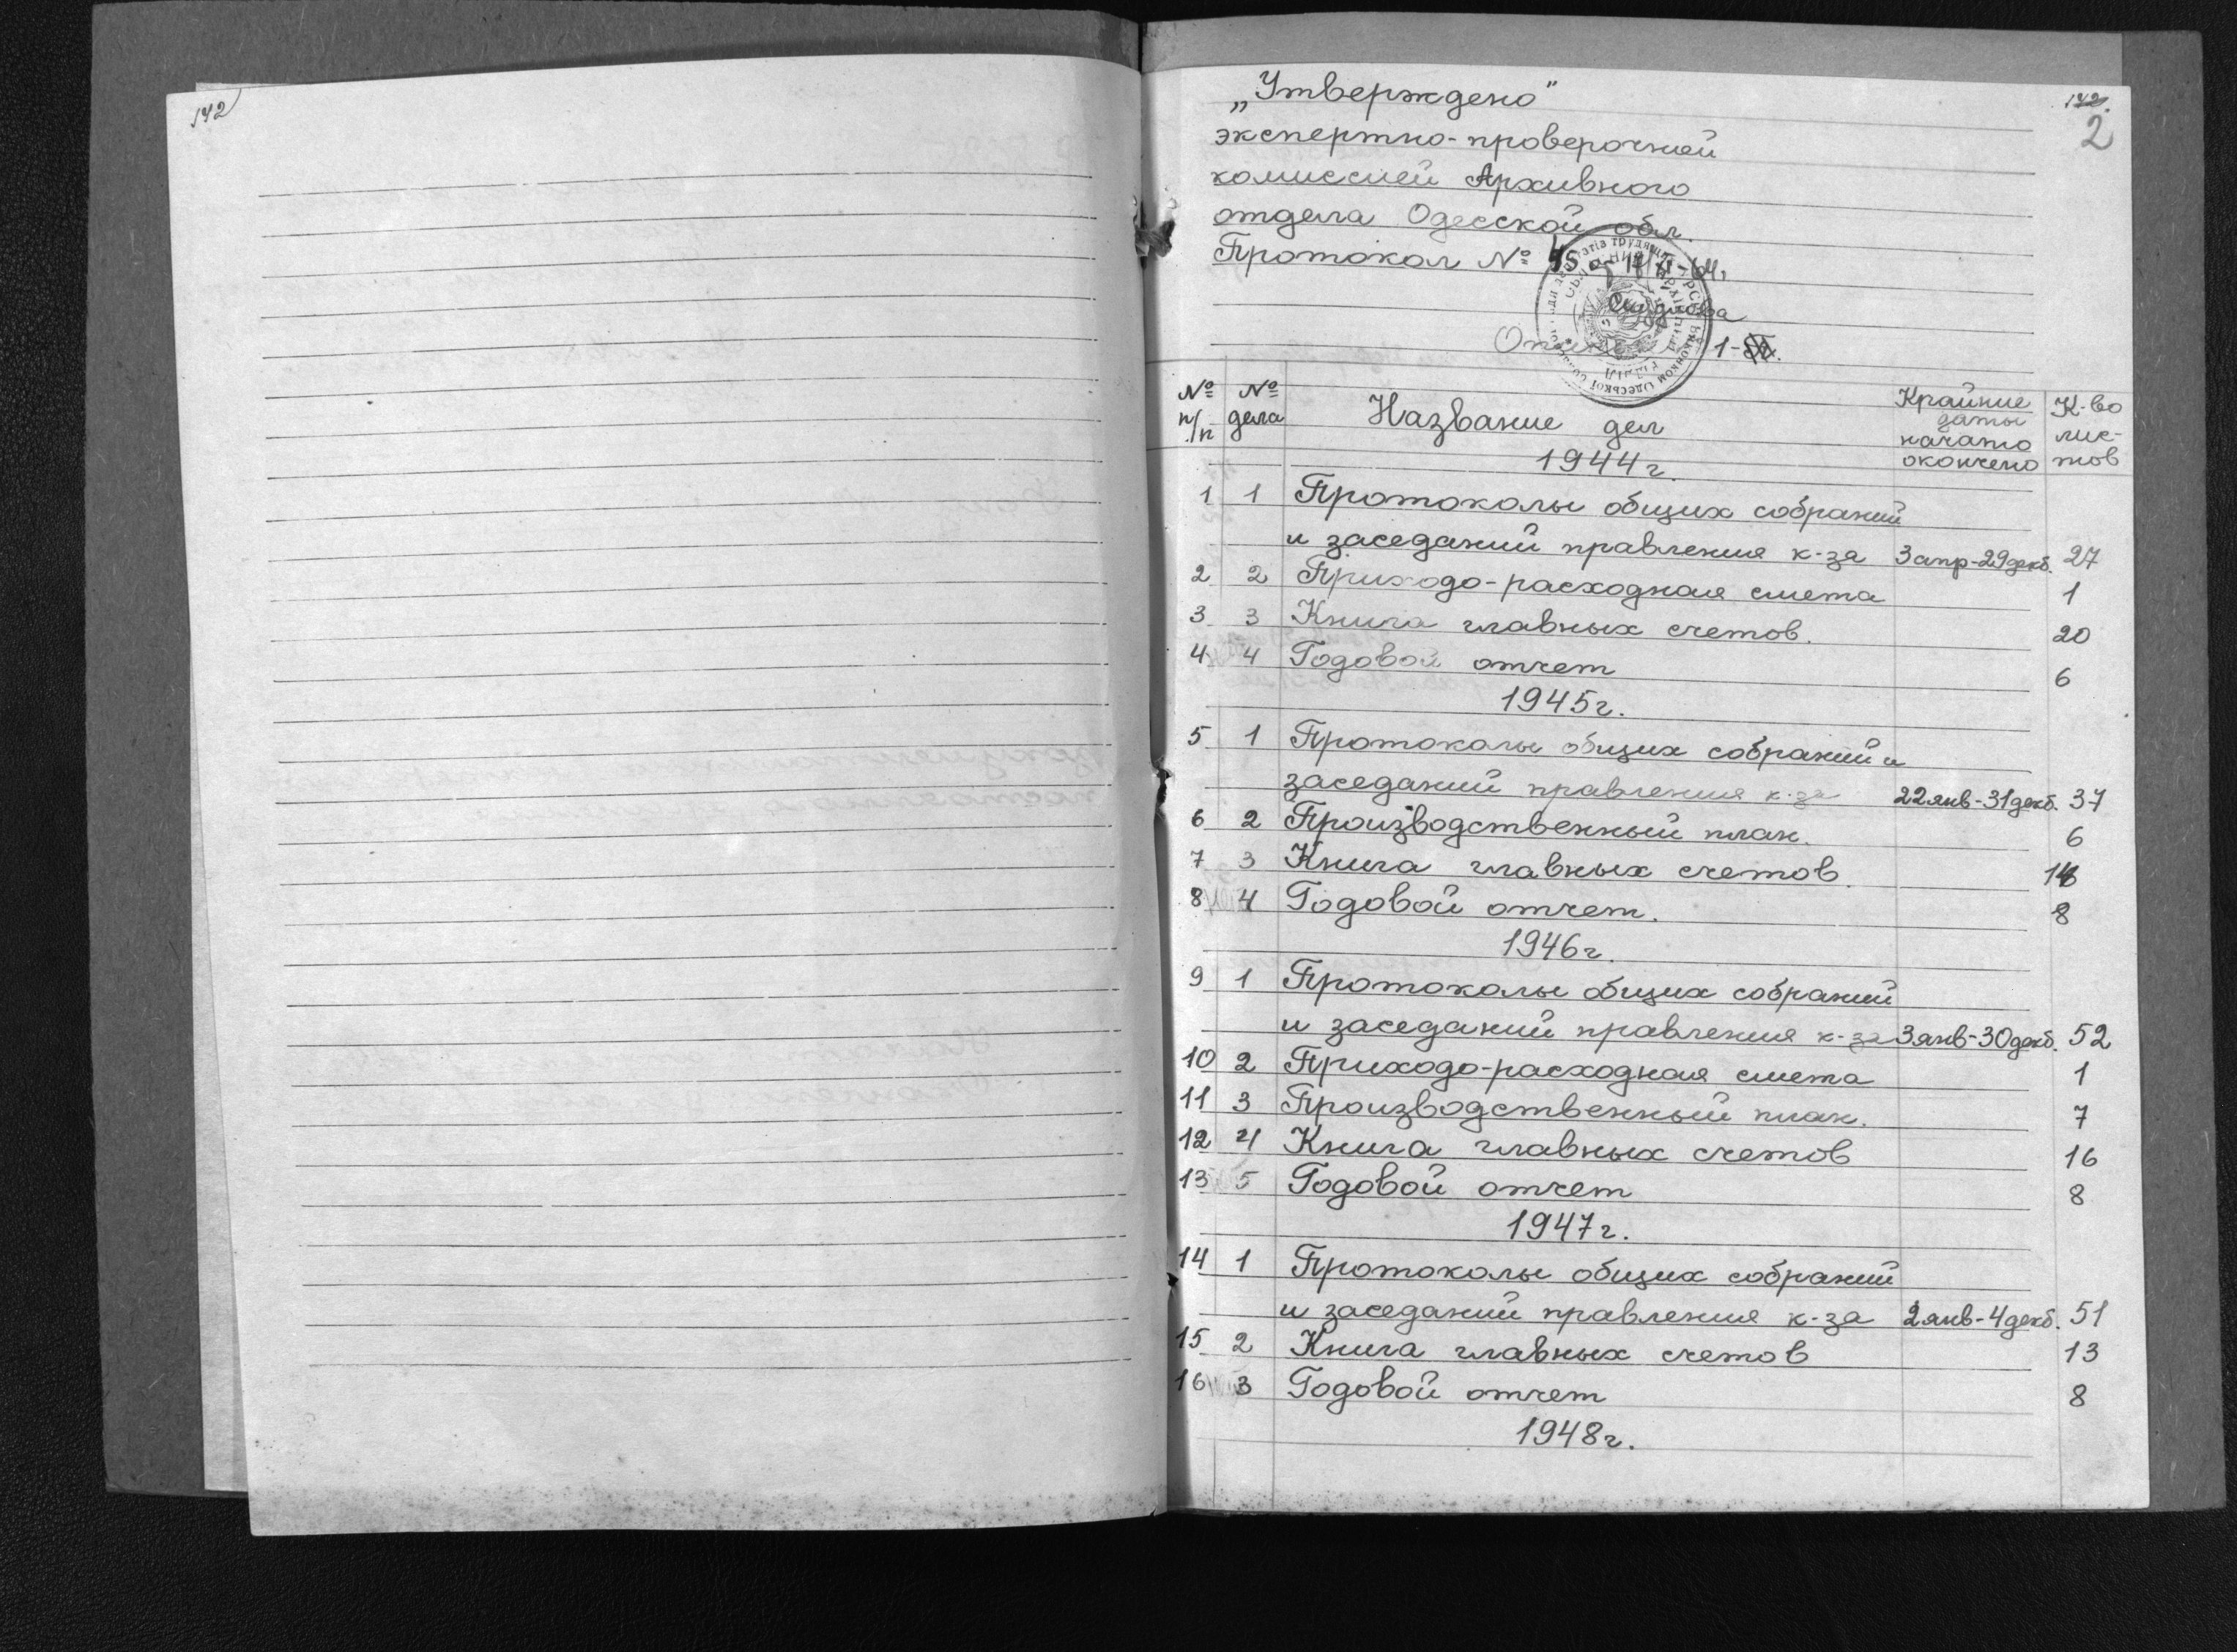 142
142.
2
„Утверждено"
экспертно-проверочной
комиссией Архивного
отдела Одесской обл.
Протокол №
№ п/п № дела Название дел Крайние даты начато окончено К-во лис-тов
1944г.
1 1 Протоколы общих собраний
и заседаний правления к-за 3апр-29декб. 27
2 2 Приходо-расходная смета 1
3 3 Книга главных счетов. 20
4 4 Годовой отчет 6
1945г.
5 1 Протоколы общих собраний и
заседаний правления к-за 22янв-31декб. 37
6 2 Производственный план. 6
7 3 Книга главных счетов.
8 4 Годовой отчет. 8
1946г.
9 1 Протоколы общих собраний
и заседаний правления к-за 3янв-30декб. 52
10 2 Приходо-расходная смета 1
11 3 Производственный план. 7
12 4 Книга главных счетов 16
13 5 Годовой отчет 8
1947г.
14 1 Протоколы общих собраний
и заседаний правления к-за 2янв-4декб. 51
15 2 Книга главных счетов 13
16 3 Годовой отчет 8
1948г.